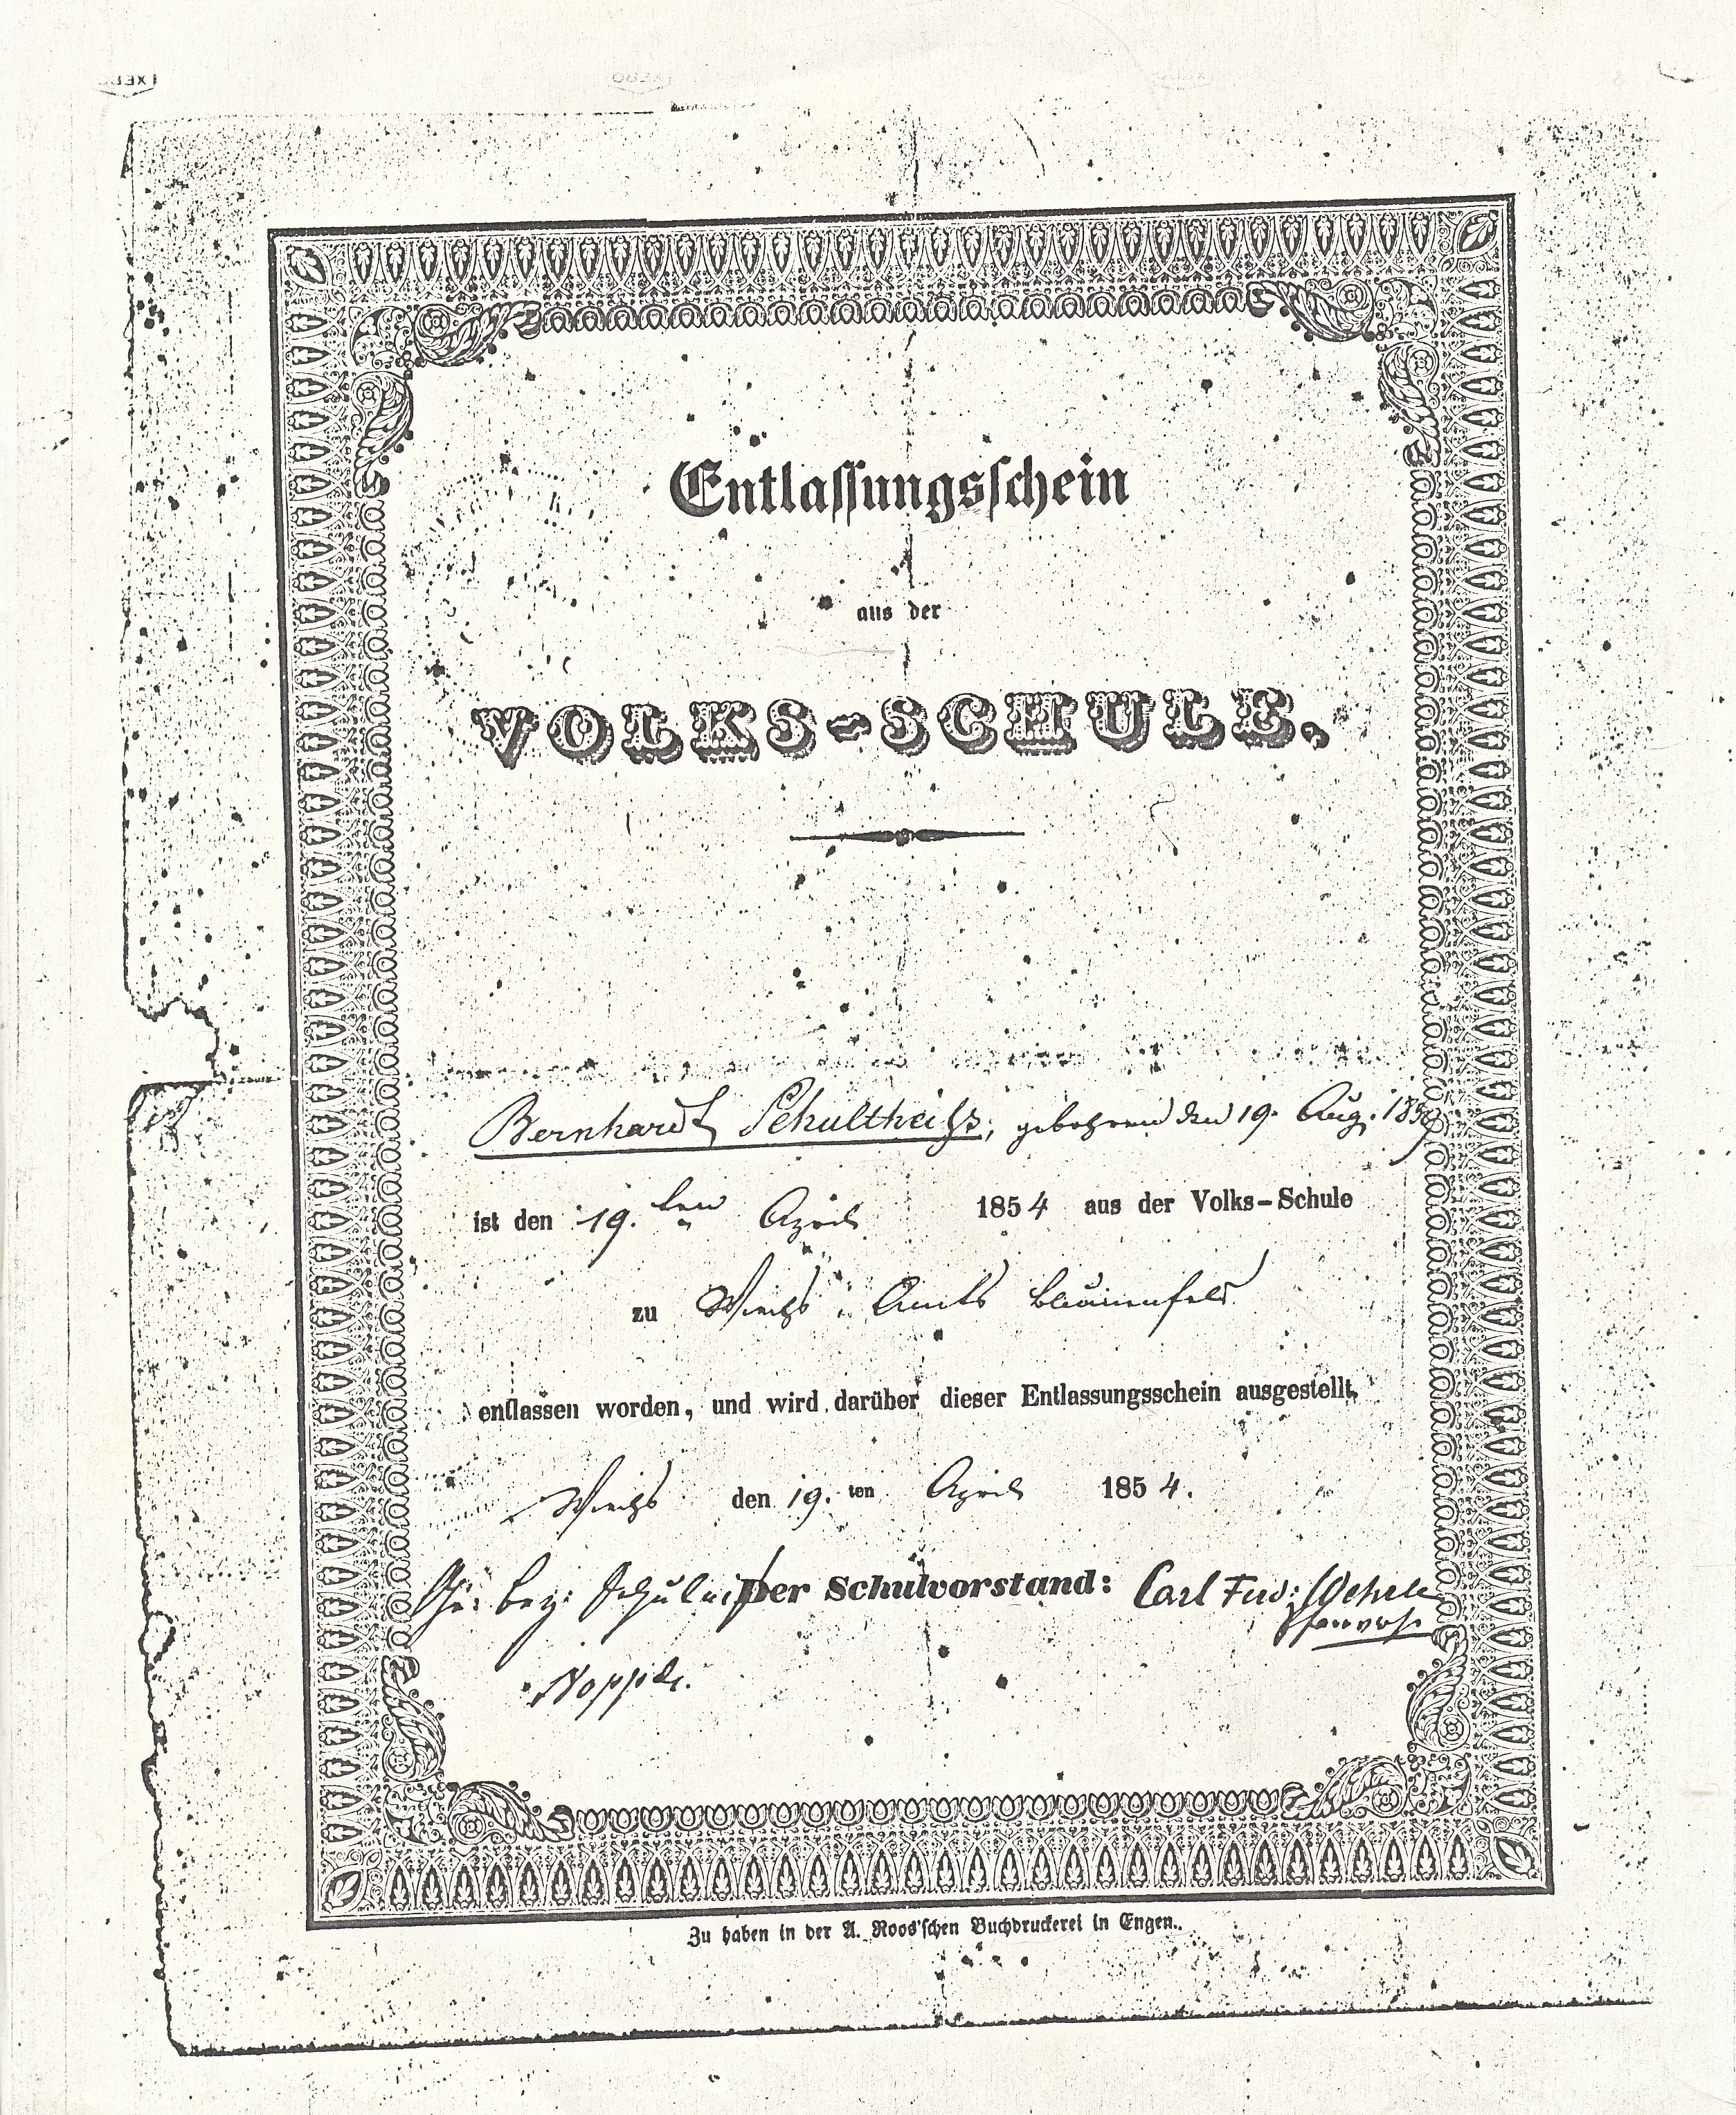 Entlassungsschein
aus der
VOLKS-SCHULE.
Bernhardt Schultheiß, gebohren den 19. Aug. 18
ist den 19. ten April 1854 aus der Volks-Schule
zu Wiechs Amts Blumenfeld
entlassen worden, und wird darüber dieser Entlassungsschein ausgestellt,
Wiechs den 19. ten April 1854.
Der Schulvorstand: Carl
Zu haben in der A. Roos'schen Buchdruckerei in Engen.